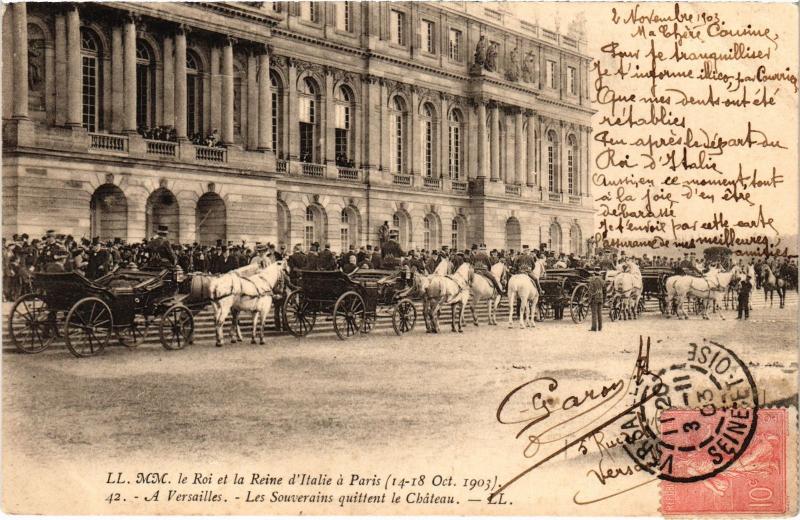 2 Novembre 1903.
Ma Chère Cousine,
Pour te tranquilliser
Je t'informe illico, par Courrier
Que mes dents ont été
rétablies
peu après le départ du
Roi d'Italie
Aussi, en ce moment, tout
à la joie d'en être
débarassé
Je t'envoie par cette carte
l'assurance de mes meilleures amitiés
Garon
15 Rue
Versa
VERSAILLES
11 20
3 -11
03
SEINE-ET-OISE
10c
LL. MM. le Roi et la Reine d'Italie à Paris (14-18 Oct. 1903).
42. - A Versailles. - Les Souverains quittent le Château. — LL.